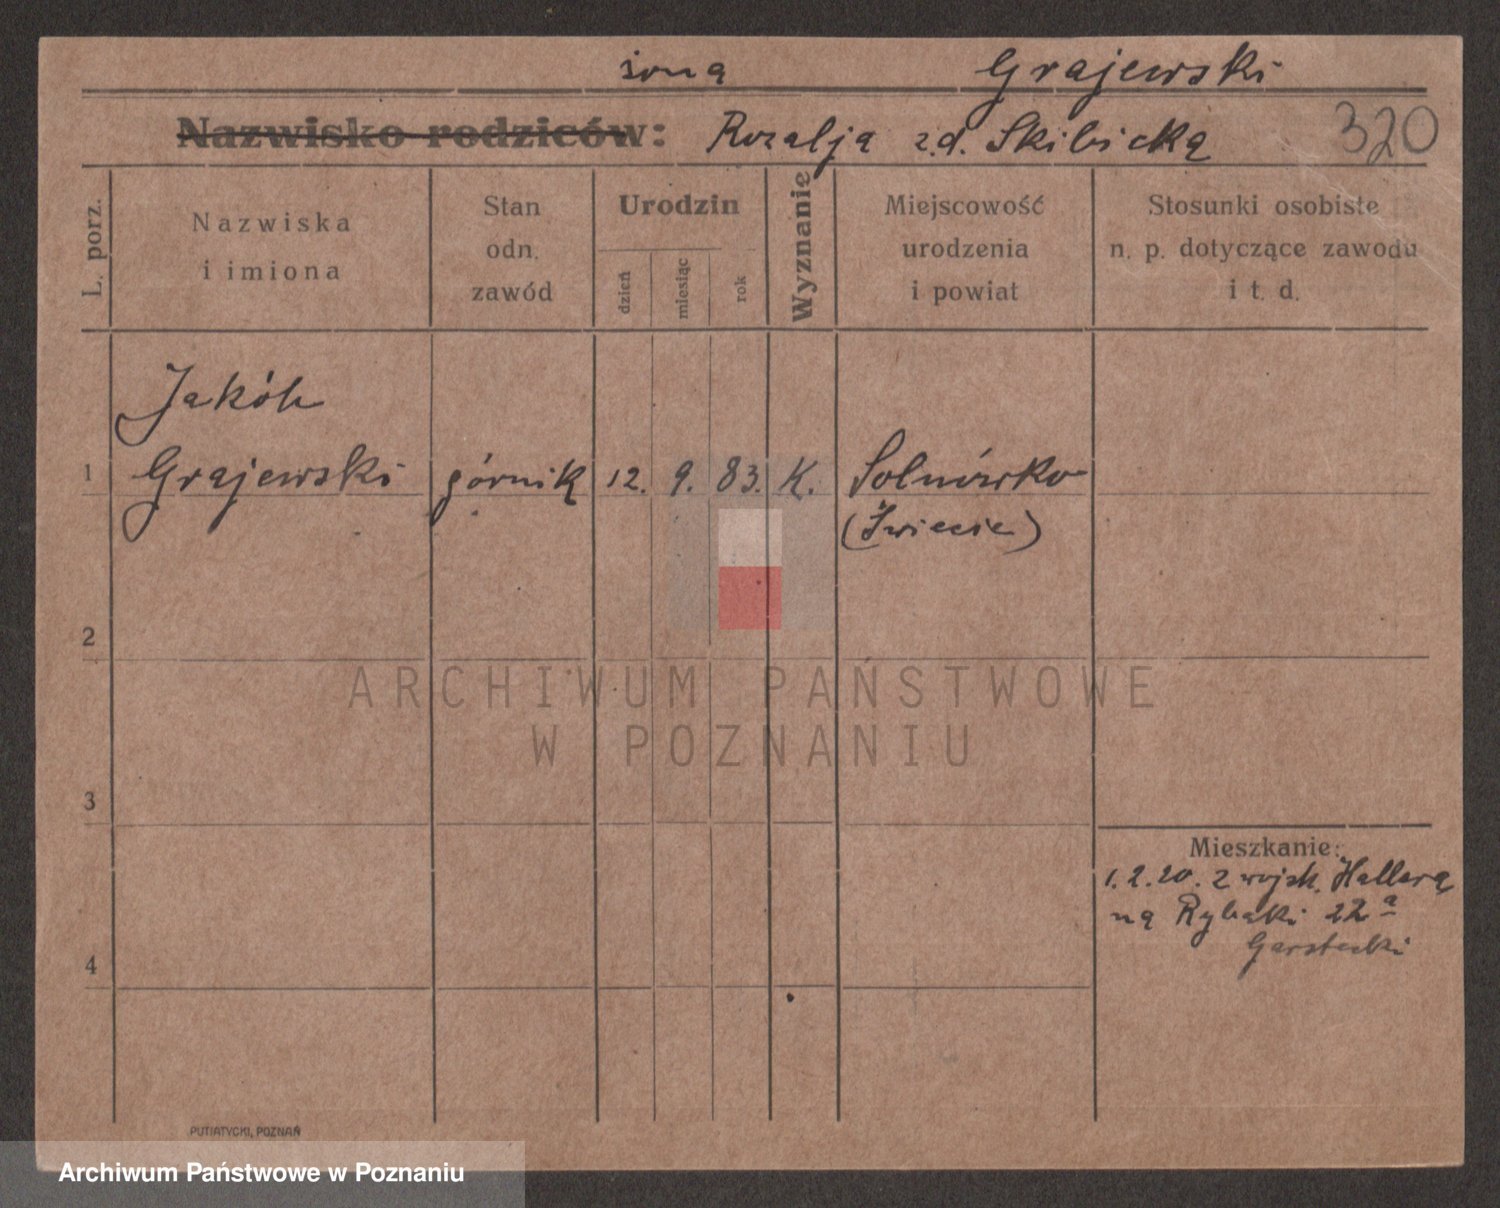 żoną Grajewski
Nazwisko rodziców: Rozalją z.d. Skibicką 320
L. porz.
Nazwiska
i imiona
Stan
odn.
zawód
Urodzin
dzień
miesiąc
rok
Wyznanie
Miejscowość
urodzenia
i powiat
Stosunki osobiste
n. p. dotyczące zawodu
i t. d.
Jakób
1 Grajewski górnik 12. 9. 83. K. Solnówko
(Świecie)
2
ARCHIWUM PAŃSTWOWE
W POZNANIU
3
Mieszkanie:
1.2.20. z wojsk. Hallera
na Rybaki 22a
Garstecki
4
PUTIATYCKI, POZNAŃ
Archiwum Państwowe w Poznaniu